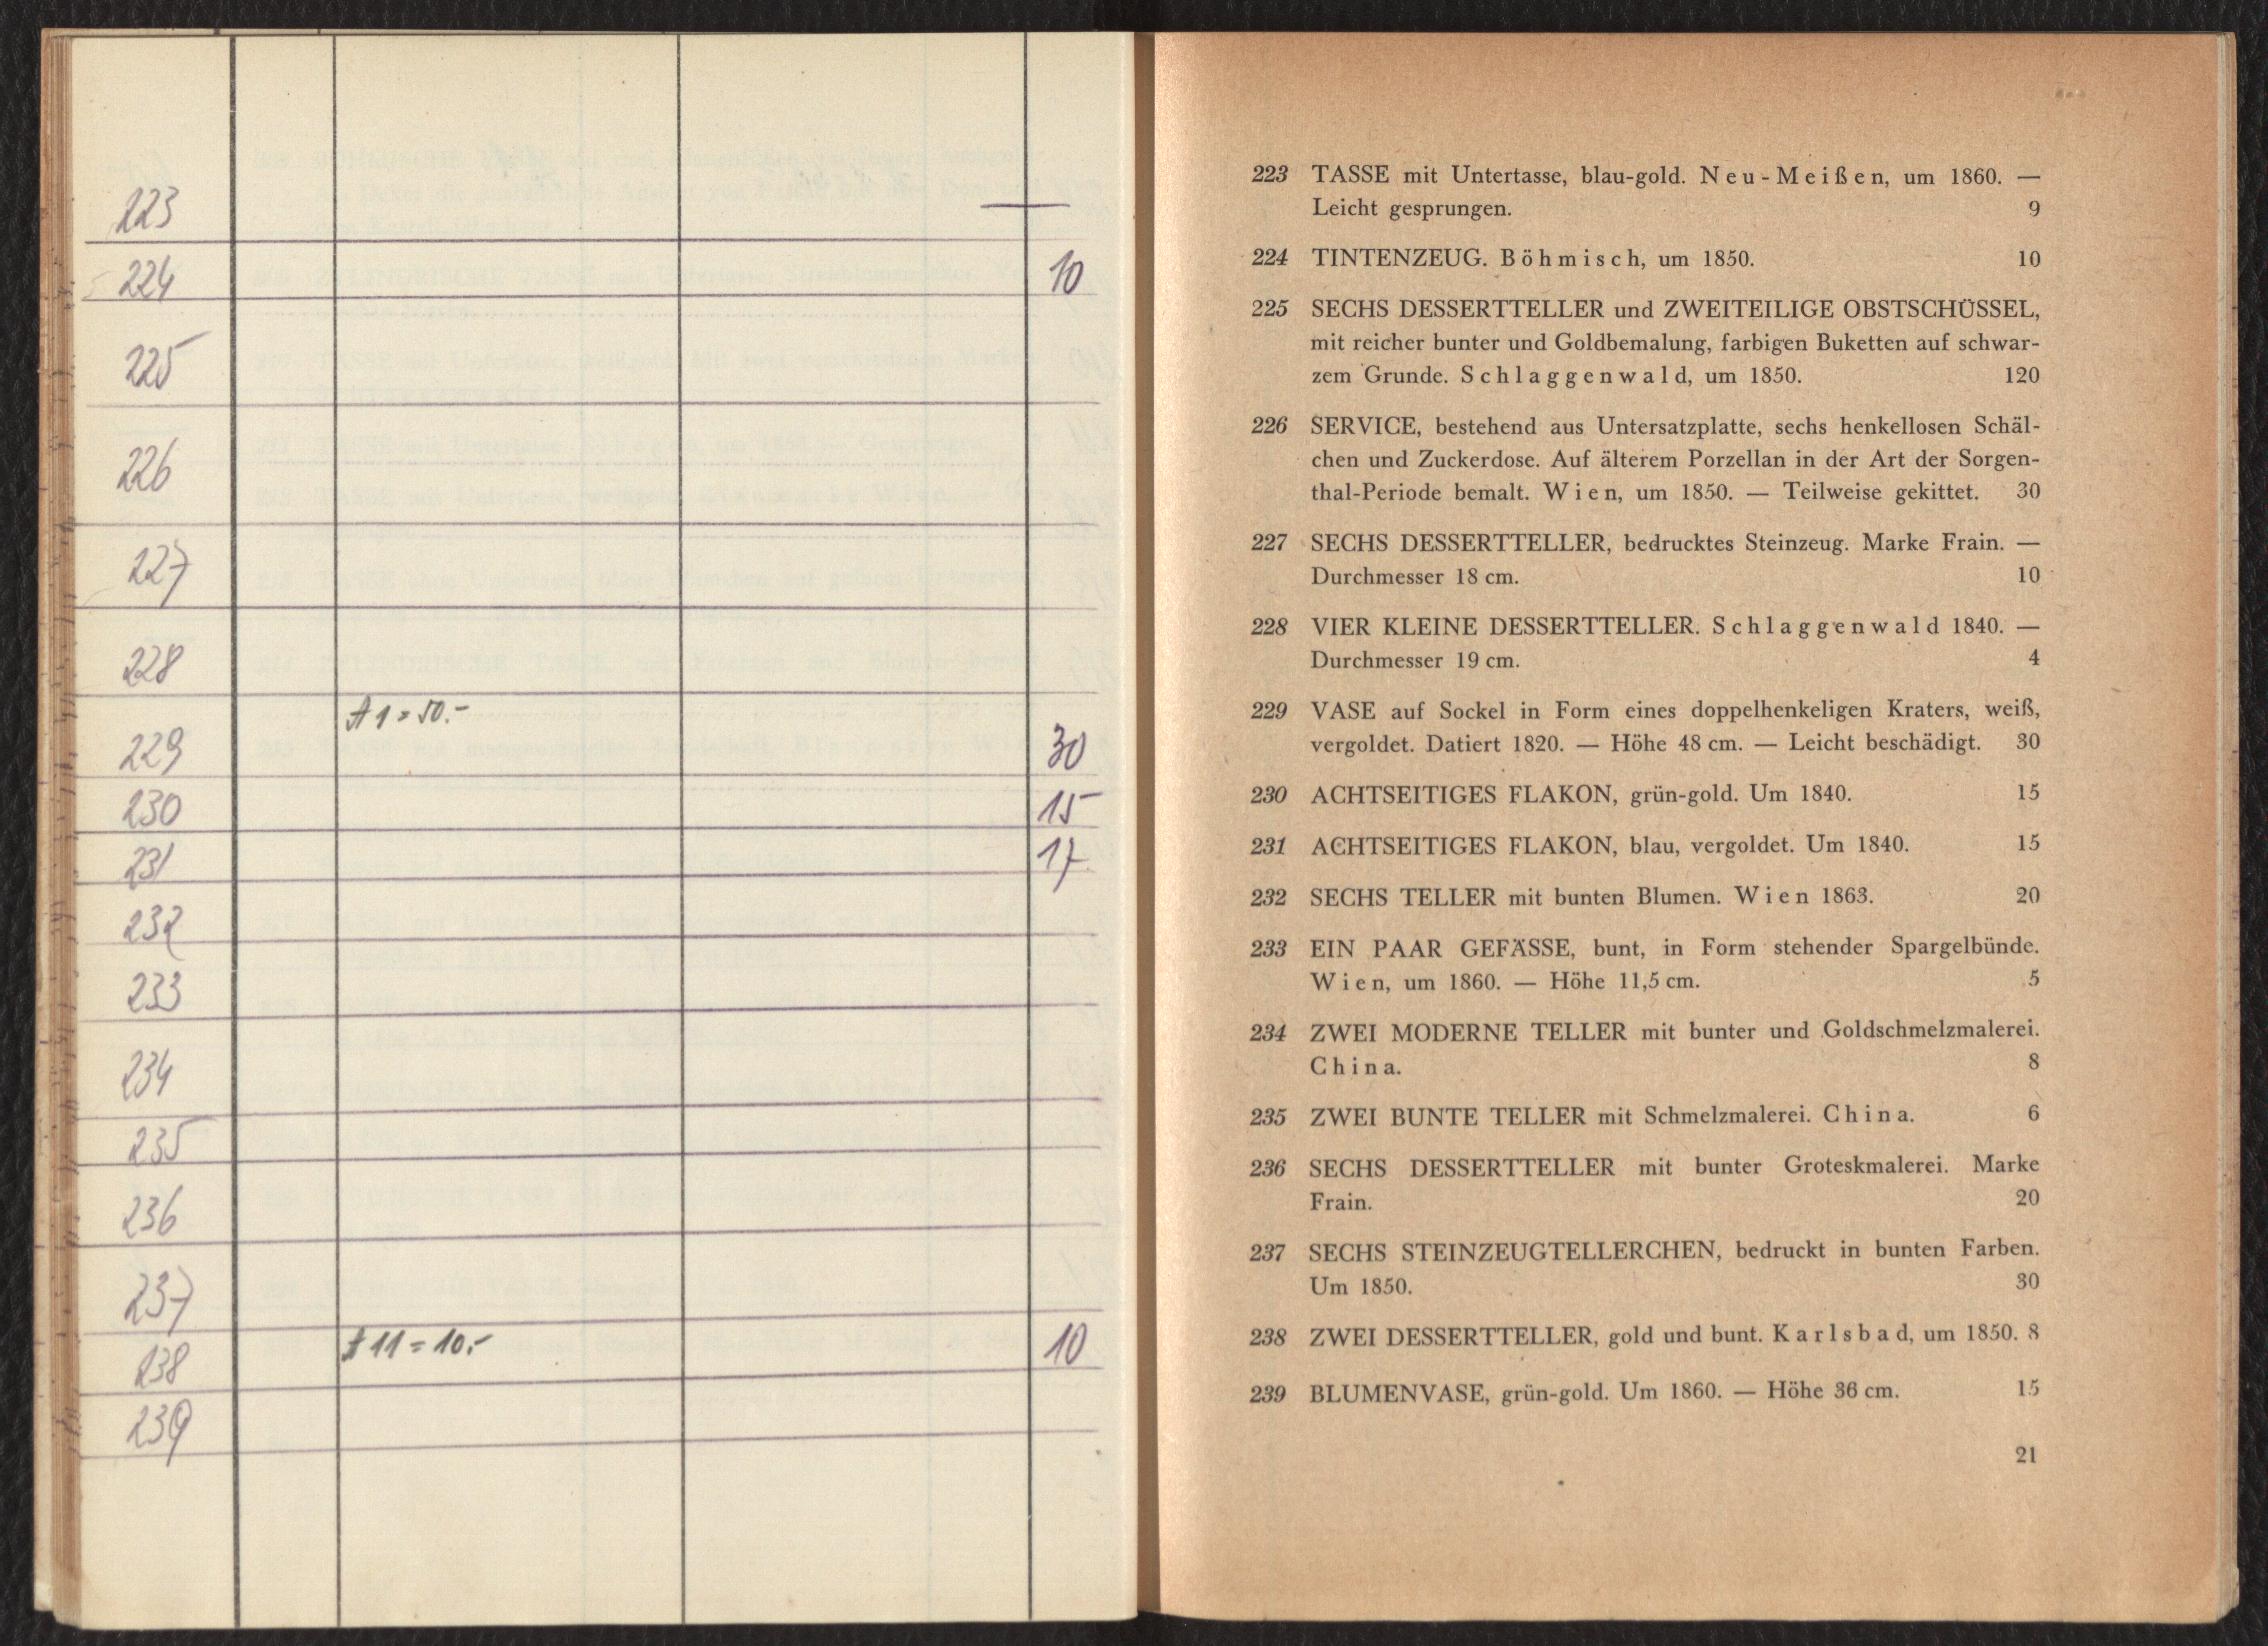 223
224 10
225
226
227
228
A 1 = 50.-
229 30
230 15
231 17
232
233
234
235
236
237
11 = 10.-
238 10
239
223 TASSE mit Untertasse, blau-gold. Neu-Meißen, um 1860. —
Leicht gesprungen. 9
224 TINTENZEUG. Böhmisch, um 1850. 10
225 SECHS DESSERTTELLER und ZWEITEILIGE OBSTSCHÜSSEL,
mit reicher bunter und Goldbemalung, farbigen Buketten auf schwar-
zem Grunde. Schlaggenwald, um 1850. 120
226 SERVICE, bestehend aus Untersatzplatte, sechs henkellosen Schäl-
chen und Zuckerdose. Auf älterem Porzellan in der Art der Sorgen-
thal-Periode bemalt. Wien, um 1850. — Teilweise gekittet. 30
227 SECHS DESSERTTELLER, bedrucktes Steinzeug. Marke Frain. —
Durchmesser 18 cm. 10
228 VIER KLEINE DESSERTTELLER. Schlaggenwald 1840. —
Durchmesser 19 cm. 4
229 VASE auf Sockel in Form eines doppelhenkeligen Kraters, weiß,
vergoldet. Datiert 1820. — Höhe 48 cm. — Leicht beschädigt. 30
230 ACHTSEITIGES FLAKON, grün-gold. Um 1840. 15
231 ACHTSEITIGES FLAKON, blau, vergoldet. Um 1840. 15
232 SECHS TELLER mit bunten Blumen. Wien 1863. 20
233 EIN PAAR GEFÄSSE, bunt, in Form stehender Spargelbünde.
Wien, um 1860. — Höhe 11,5 cm. 5
234 ZWEI MODERNE TELLER mit bunter und Goldschmelzmalerei.
China. 8
235 ZWEI BUNTE TELLER mit Schmelzmalerei. China. 6
236 SECHS DESSERTTELLER mit bunter Groteskmalerei. Marke
Frain. 20
237 SECHS STEINZEUGTELLERCHEN, bedruckt in bunten Farben.
Um 1850. 30
238 ZWEI DESSERTTELLER, gold und bunt. Karlsbad, um 1850. 8
239 BLUMENVASE, grün-gold. Um 1860. — Höhe 36 cm. 15
21